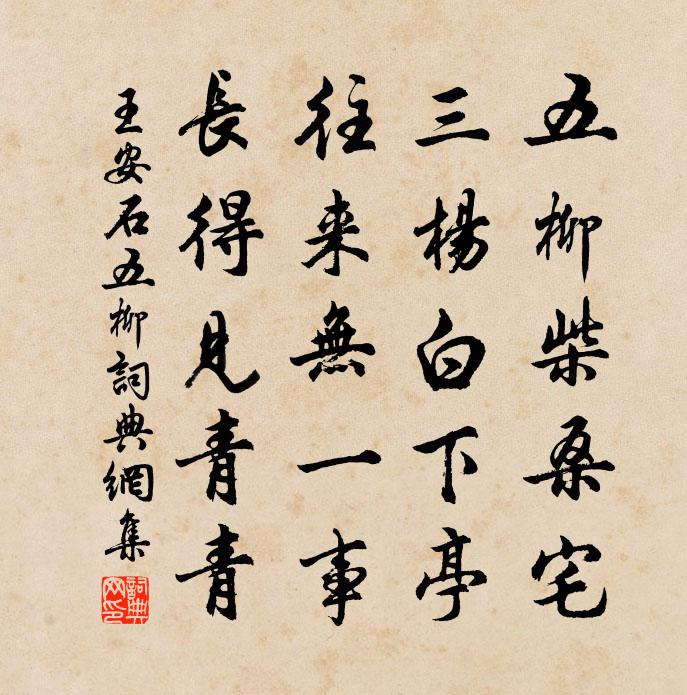 五柳柴桑宅
三楊白下亭
往来無一事
長得見青青
王安石五柳詞典網集
詞典網印